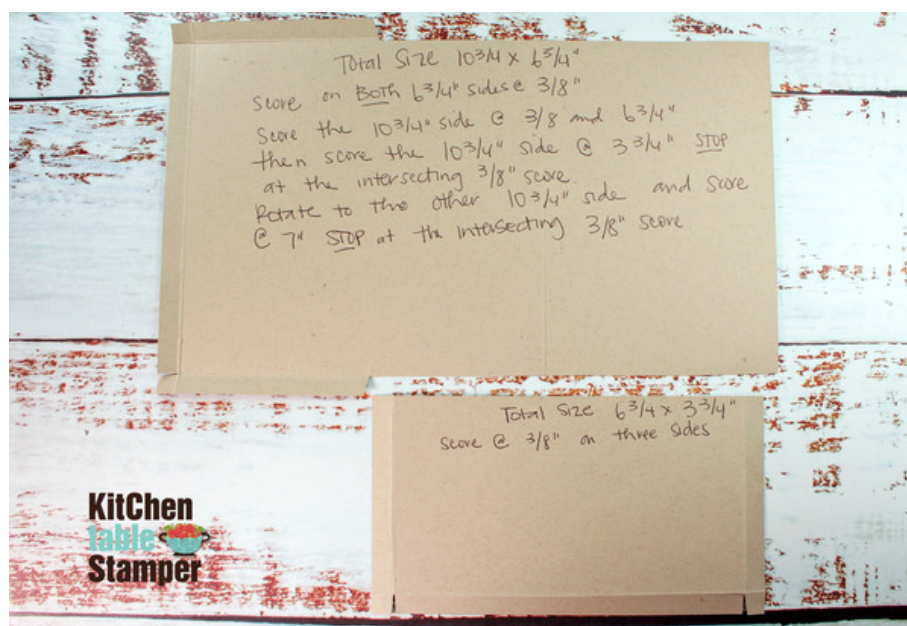 Total Size 10 3/4 x 6 5/4"
Score on BOTH 6 3/4" sides @ 3/8"
Score the 10 3/4" side @ 3/8 and 6 3/4"
then score the 10 3/4" side @ 3 3/4" STOP
at the intersecting 3/8" score.
Rotate to the other 10 3/4" side and score
@ 7" STOP at the intersecting 3/8" score
Total Size 6 3/4 x 3 3/4"
Score @ 3/8" on three sides
KitChen
table
Stamper